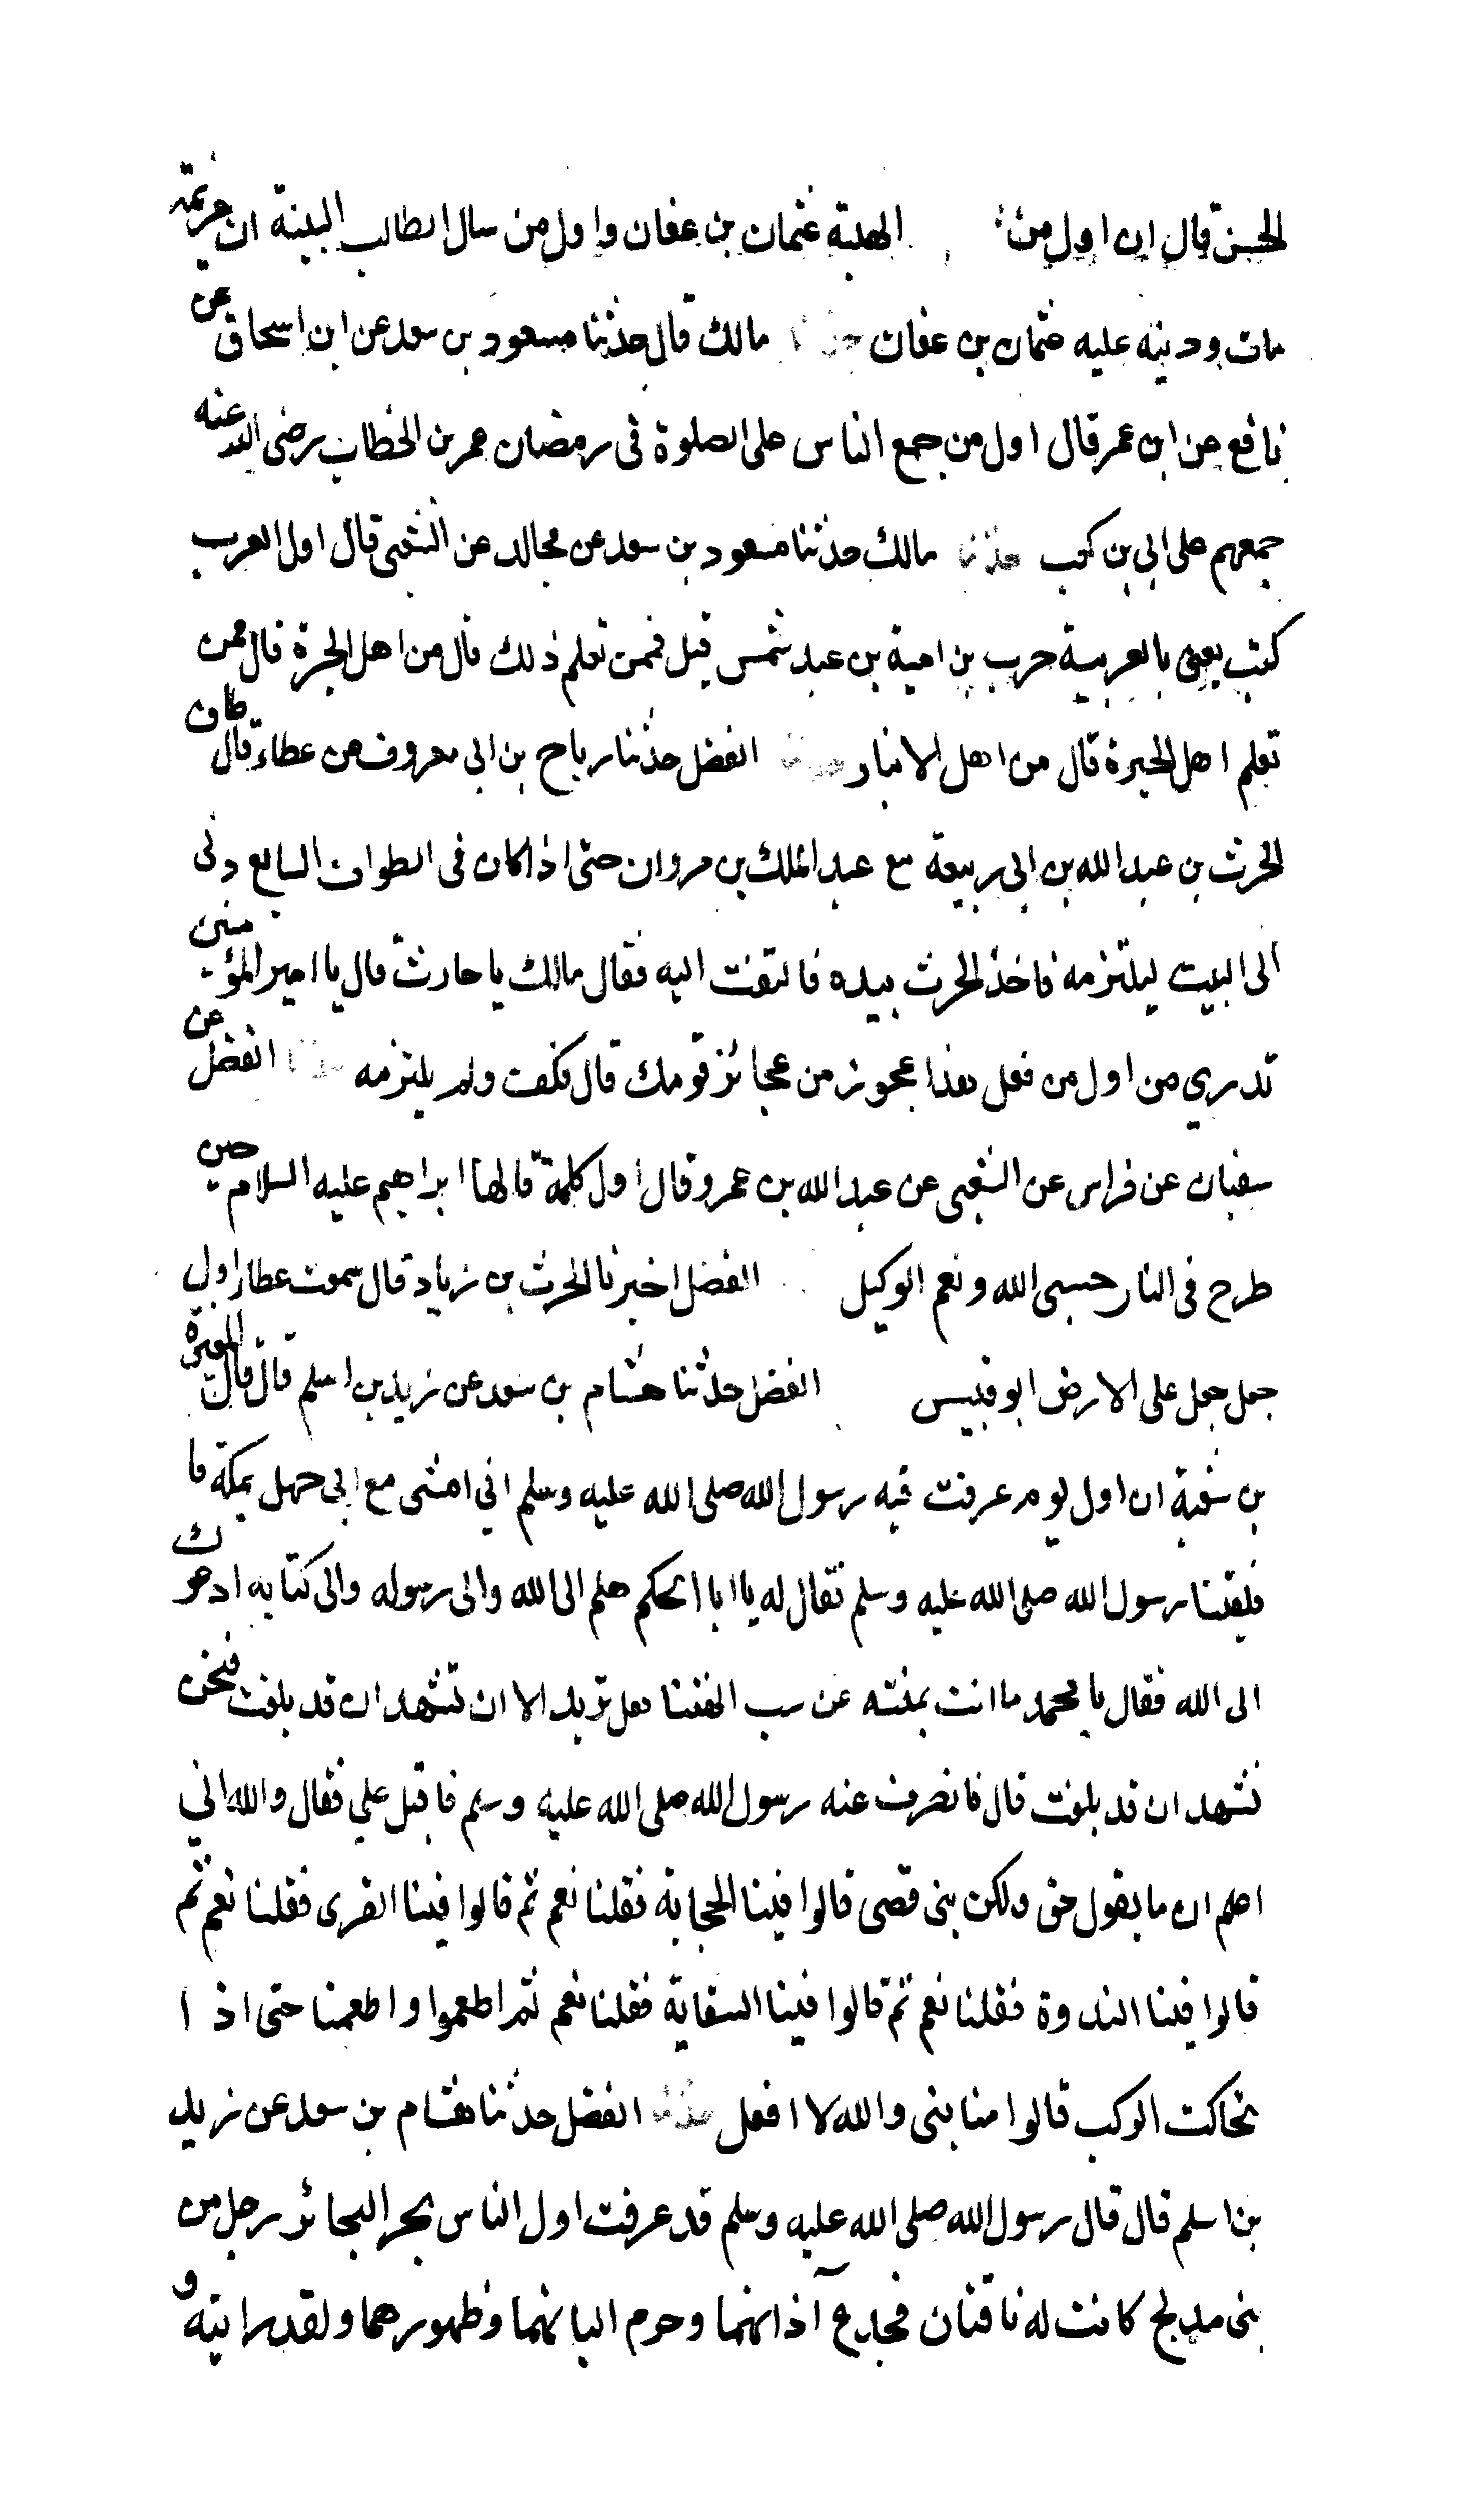 الحسن قال ان اول من الهبة عثمان بن عفان واول من سال الطالب البينة ان غريمه
مات ودينه عليه عثمان بن عفان حدثنا مالك قال حدثنا مسعود بن سعد عن ابن اسحاق عن
نافع عن ابن عمر قال اول من جمع الناس على الصلوة فى رمضان عمر بن الخطاب رضى الله عنه
جمعهم على ابى بن كعب حدثنا مالك حدثنا مسعود بن سعد عن مجالد عن الشعبى قال اول العرب
كتب يعنى بالعربية حرب بن امية بن عبد شمس قيل فممن تعلم ذلك قال من اهل الحيرة قال فممن
تعلم اهل الحيرة قال من اهل الانبار حدثنا الفضل حدثنا رباح بن ابى معروف عن عطاء قال طاف
الحرث بن عبد الله بن ابى ربيعة مع عبد الملك بن مروان حتى اذا كان فى الطواف السابع دنى
الى البيت ليلتزمه فاخذ الحرث بيده فالتفت اليه فقال مالك يا حارث قال يا امير المؤمنين
تدري من اول من فعل هذا عجوز من عجائز قومك قال فكفت ولم يلتزمه حدثنا الفضل عن
سفيان عن فراس عن الشعبى عن عبد الله بن عمرو قال اول كلمة قالها ابراهيم عليه السلام حين
طرح فى النار حسبى الله ونعم الوكيل الفضل اخبرنا الحرث بن زياد قال سمعت عطاء اول
جبل جعل على الارض ابو قبيس الفضل حدثنا هشام بن سعد عن زيد بن اسلم قال قال المغيرة
بن شعبة ان اول يوم عرفت فيه رسول الله صلى الله عليه وسلم اني امشى مع ابى جهل بمكة فا
فلقينا رسول الله صلى الله عليه وسلم فقال له يا ابا الحكم هلم الى الله والى رسوله والى كتابه ادعوك
الى الله فقال يا محمد ما انت بمنته عن سب الهتنا هل تريد الا ان نشهد ان قد بلغت فنحن
نشهد ان قد بلغت قال فانصرف عنه رسول الله صلى الله عليه وسلم فاقبل علي فقال والله اني
اعلم ان ما يقول حق ولكن بنى قصى قالوا فينا الحجابة فقلنا نعم ثم قالوا فينا القرى فقلنا نعم ثم
قالوا فينا الندوة فقلنا نعم ثم قالوا فينا السقاية فقلنا نعم ثم اطعموا واطعمنا حتى اذا
تحاكت الركب قالوا منا نبى والله لا افعل حدثنا الفضل حدثنا هشام بن سعد عن زيد
بن اسلم قال قال رسول الله صلى الله عليه وسلم قد عرفت اول الناس بحر البحائر رجل من
بنى مدلج كانت له ناقتان فجدع آذانهما وحرم البانهما وظهورهما ولقد رايته و